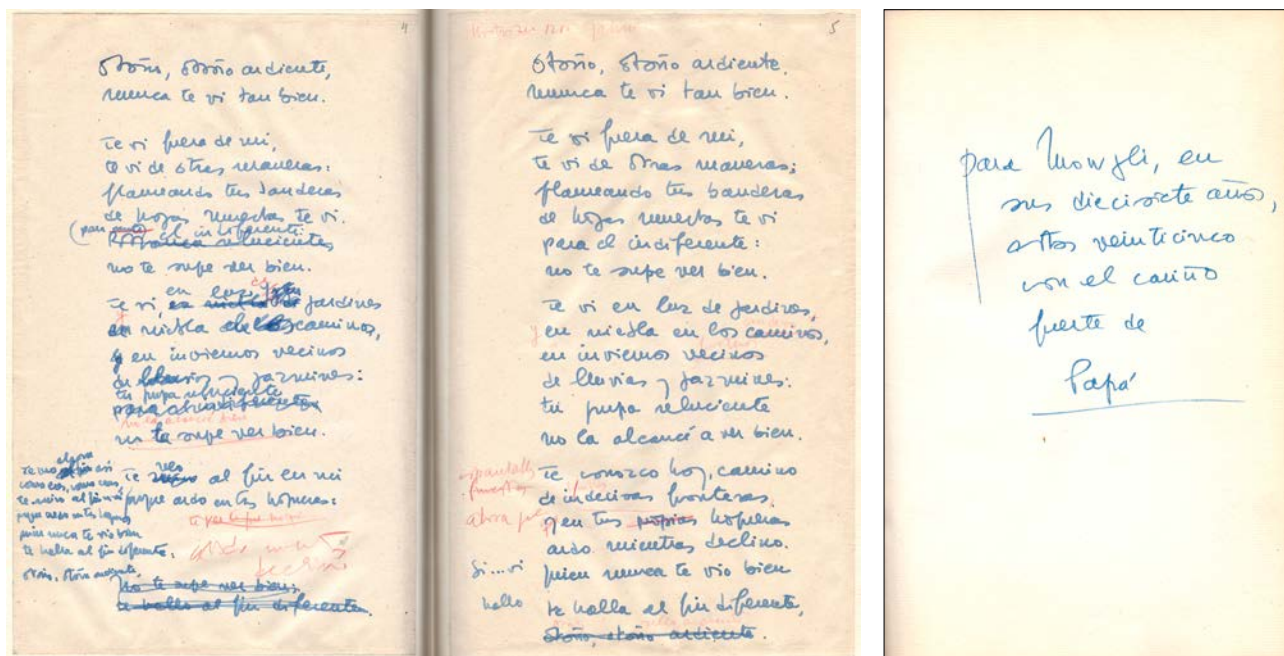 4
Otoño, otoño ardiente,
nunca te vi tan bien.
Te vi fuera de mi,
te vi de otras maneras:
flameando tus banderas
de hojas muertas te vi.
(para el indiferente:
relucientes
no te supe ver bien.
en luz de
Te vi, jardines
en niebla de los caminos,
y en inviernos vecinos
de lluvias y jazmines:
tu pupa reluciente
para el indiferente
no la alcancé bien
no te supe ver bien.
Te veo al fin en mi
porque ardo en tus hogueras:
ardo mientras
declino
no te supe ver bien;
te hallo al fin diferente.
ahora
quien nunca te vio bien
te halla al fin diferente:
otoño, otoño ardiente
5
Otoño, otoño ardiente,
nunca te vi tan bien.
Te vi fuera de mi,
te vi de otras maneras;
flameando tus banderas
de hojas muertas te vi
para el indiferente:
no te supe ver bien.
Te vi en luz de jardines,
y en niebla en los caminos,
en inviernos vecinos
de lluvias y jazmines:
tu pupa reluciente
no la alcancé a ver bien.
Te conozco hoy, camino
de indecisas fronteras,
ahora
y en tus propias hogueras
ardo mientras declino.
Si...vi quien nunca te vio bien
hallo te halla al fin diferente,
otoño, otoño ardiente.
para Mowgli, en
sus diecisiete años,
estos veinticinco
con el cariño
fuerte de
Papá